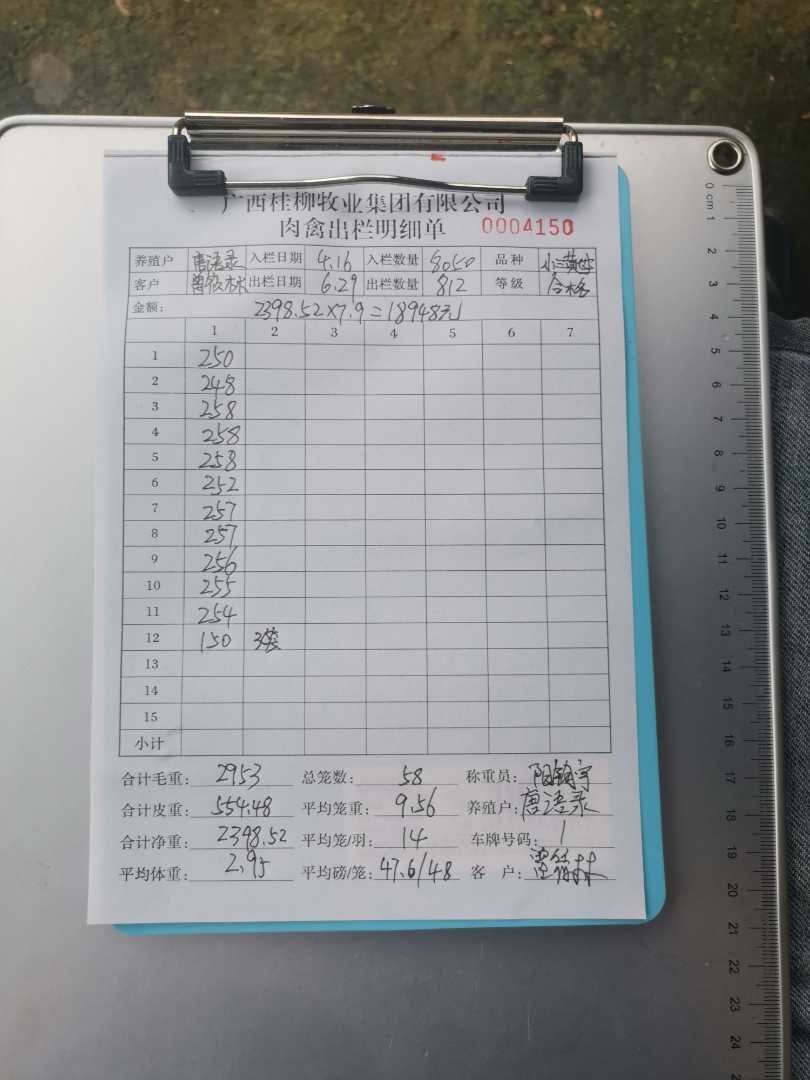 广西桂柳牧业集团有限公司
肉禽出栏明细单 0004150
养殖户 唐语录 入栏日期 4.16 入栏数量 8050 品种 小三黄
客户 出栏日期 6.29 出栏数量 812 等级 合格
金额: 2398.52×7.9=18948元
1 2 3 4 5 6 7
1 250
2 248
3 258
4 258
5 258
6 252
7 257
8 257
9 256
10 255
11 254
12 150 3笼
13
14
15
小计
合计毛重: 2953 总笼数: 58 称重员:
合计皮重: 554.48 平均笼重: 9.56 养殖户: 唐语录
合计净重: 2398.52 平均笼/羽: 14 车牌号码: 1
平均体重: 2.95 平均磅/笼: 47.6/48 客 户:
0 cm 1
2
3
4
5
6
7
8
9
10
11
12
13
14
15
16
17
18
19
20
21
22
23
24